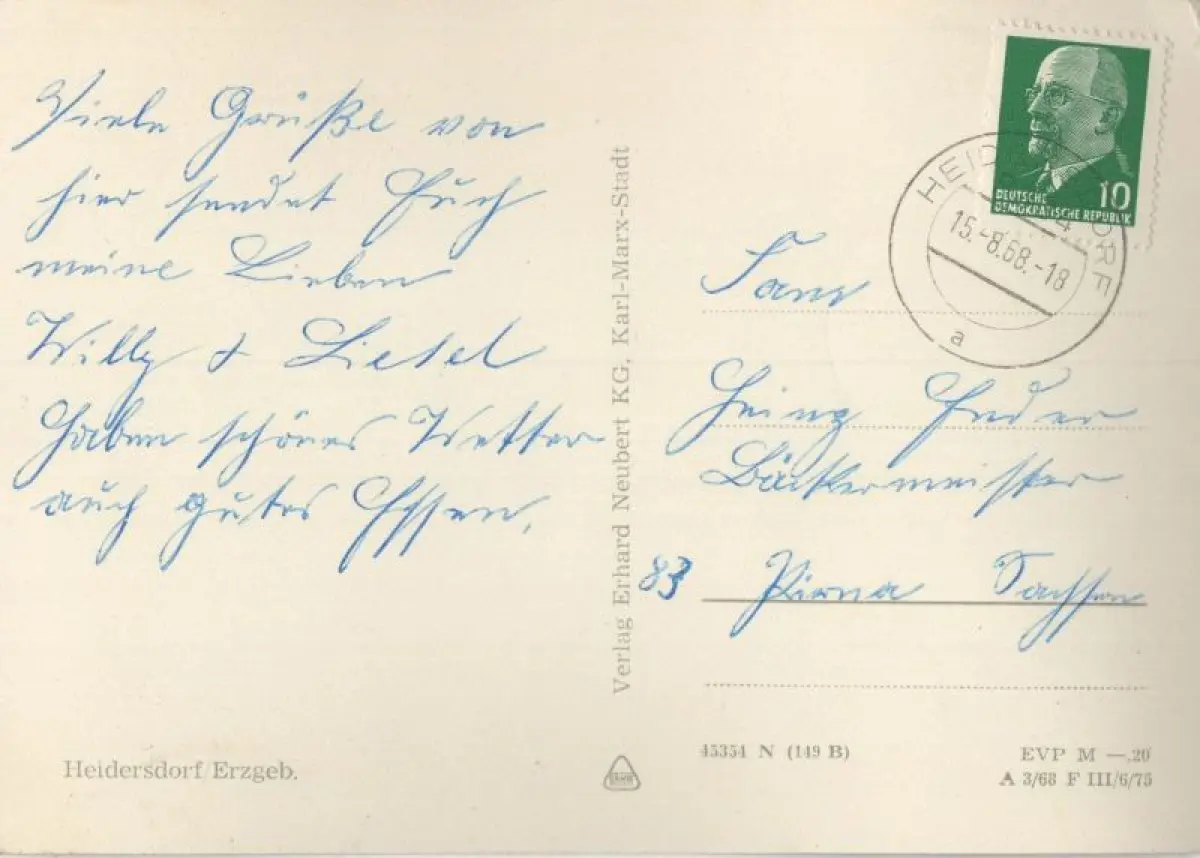 Viele Grüße von
hier sendet Euch
meine Lieben
Willy + Liesel
Haben schönes Wetter
auch gutes Essen.
Heidersdorf/Erzgeb.
Verlag Erhard Neubert KG, Karl-Marx-Stadt
DEUTSCHE
DEMOKRATISCHE REPUBLIK
10
HEID ORF
15.-8.68.-18
a
Fam
Heinz Ender
Bäckermeister
83 Pirna Sachsen
45354 N (149 B)
EVP M —,20
A 3/68 F III/6/75